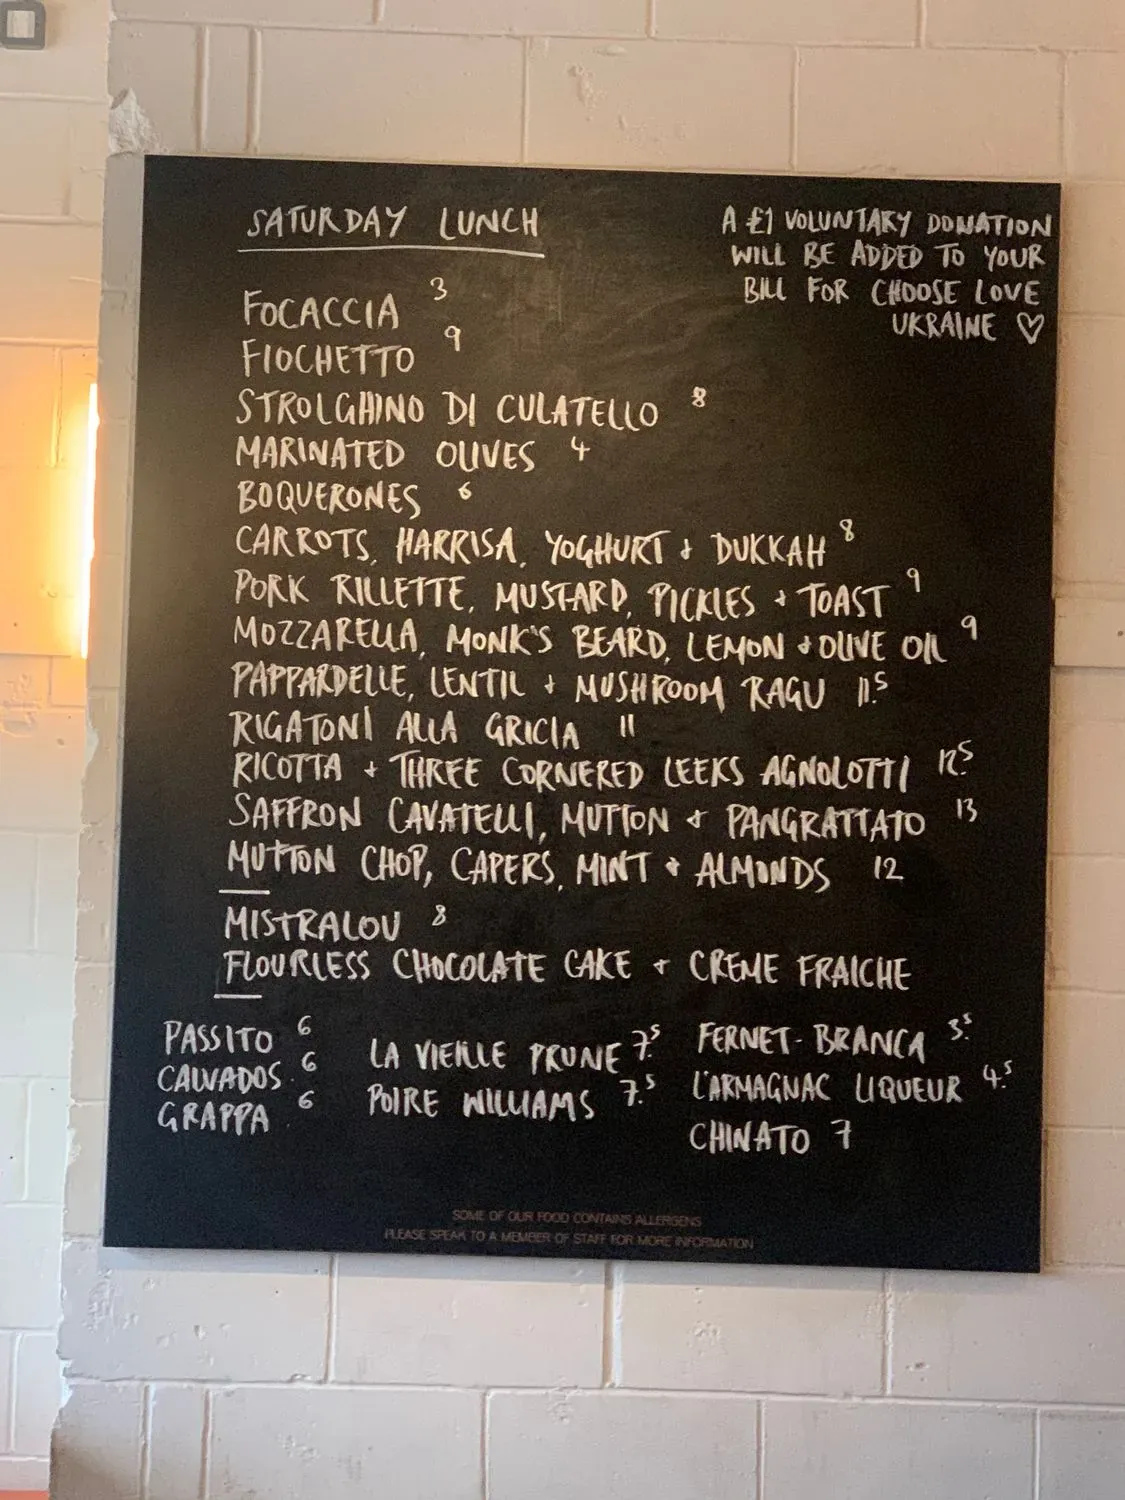 SATURDAY LUNCH
A £1 VOLUNTARY DONATION
WILL BE ADDED TO YOUR
BILL FOR CHOOSE LOVE
UKRAINE ♡
FOCACCIA 3
FIOCHETTO 9
STROLGHINO DI CULATELLO 8
MARINATED OLIVES 4
BOQUERONES 6
CARROTS, HARRISA, YOGHURT + DUKKAH 8
PORK RILLETTE, MUSTARD, PICKLES + TOAST 9
MOZZARELLA, MONK'S BEARD, LEMON + OLIVE OIL 9
PAPPARDELLE, LENTIL + MUSHROOM RAGU 11.5
RIGATONI ALLA GRICIA 11
RICOTTA + THREE CORNERED LEEKS AGNOLOTTI 12.5
SAFFRON CAVATELLI, MUTTON + PANGRATTATO 13
MUTTON CHOP, CAPERS, MINT + ALMONDS 12
MISTRALOU 8
FLOURLESS CHOCOLATE CAKE + CREME FRAICHE
PASSITO 6
CALVADOS 6
GRAPPA 6
LA VIEILLE PRUNE 7.5
POIRE WILLIAMS 7.5
FERNET-BRANCA 3.5
L'ARMAGNAC LIQUEUR 4.5
CHINATO 7
SOME OF OUR FOOD CONTAINS ALLERGENS
PLEASE SPEAK TO A MEMBER OF STAFF FOR MORE INFORMATION